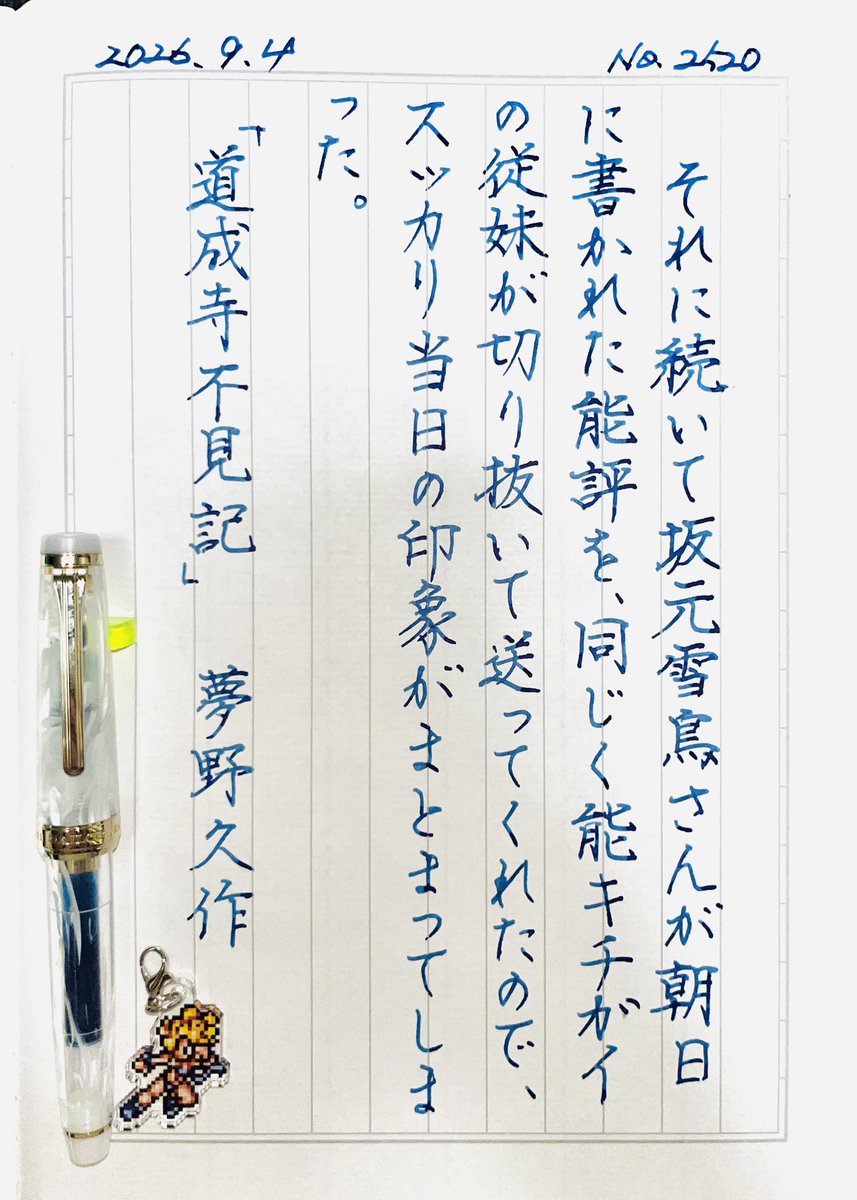 2026.9.4
No.2520
それに続いて坂元雪鳥さんが朝日
に書かれた能評を、同じく能キチガイ
の従妹が切り抜いて送ってくれたので、
スッカリ当日の印象がまとまってしま
った。
「道成寺不見記」 夢野久作